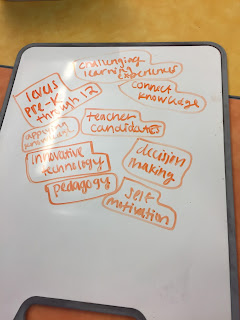 challenging
learning
experiences
levels
pre-k
through 12
connect
knowledge
applying
knowledge
teacher
candidates
innovative
technology
decision
making
pedagogy
self
motivation